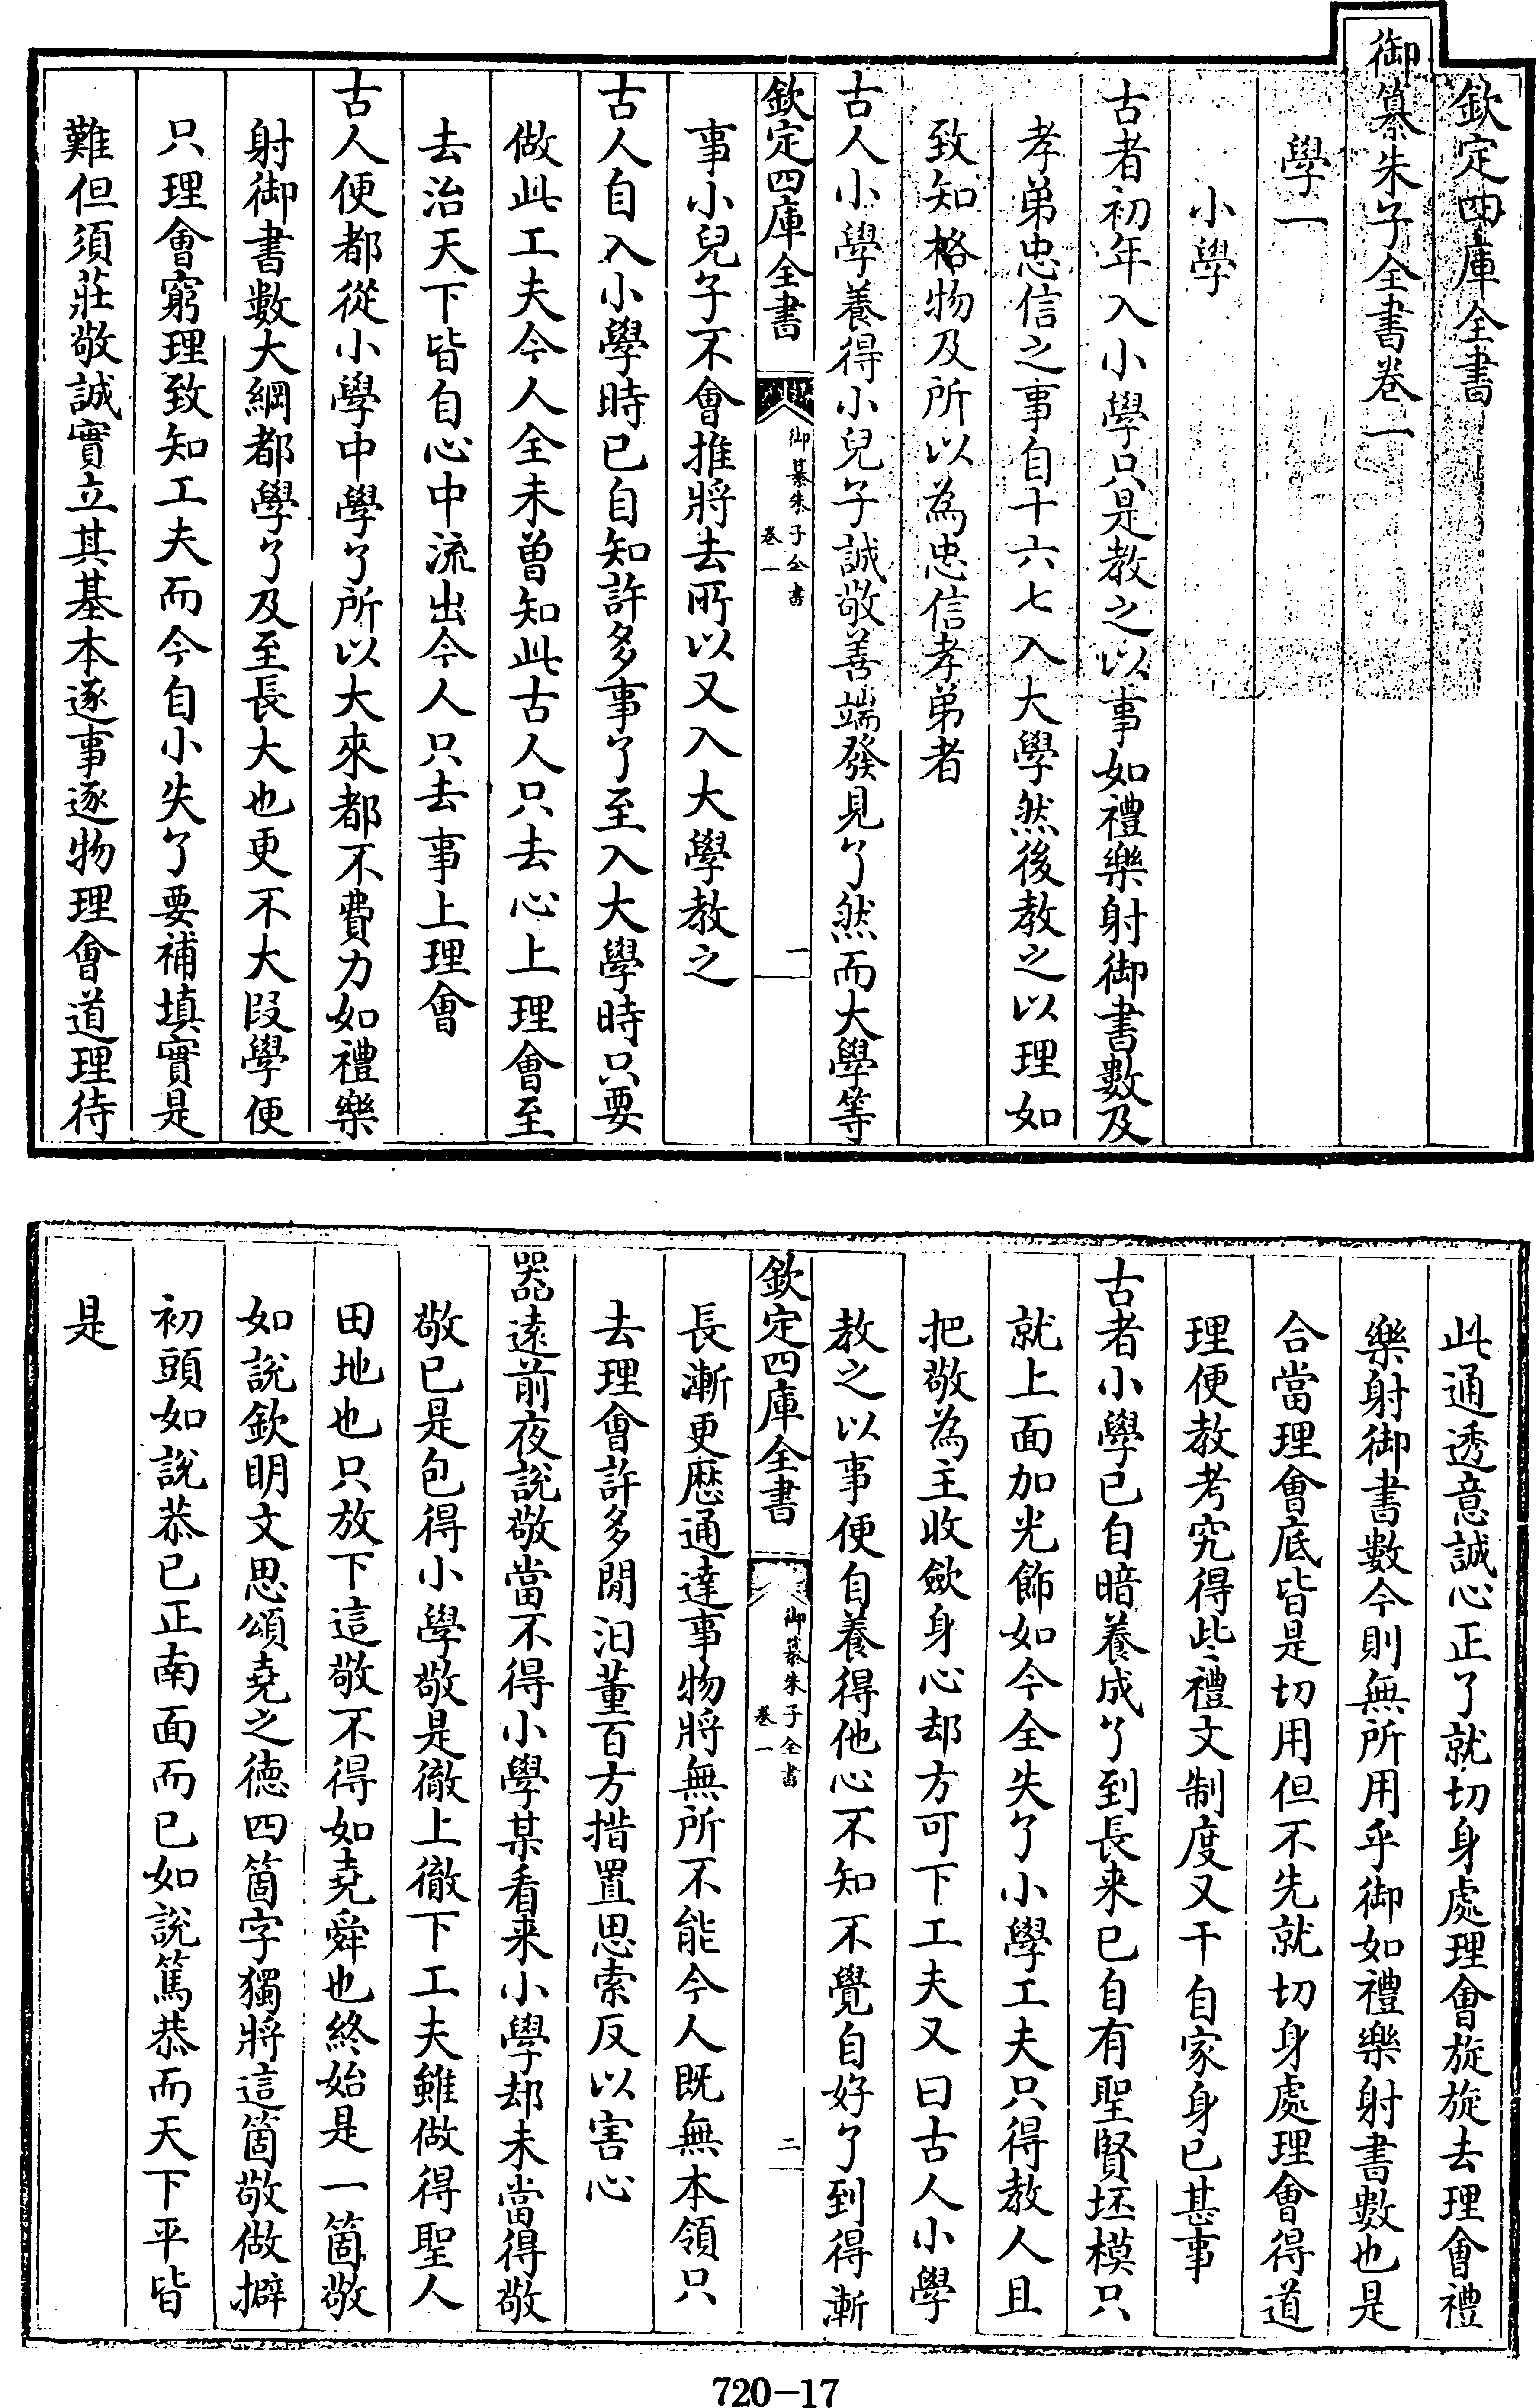 欽定四庫全書
御纂朱子全書卷一
學一
小學
古者初年入小學只是教之以事如禮樂射御書數及
孝弟忠信之事自十六七入大學然後教之以理如
致知格物及所以為忠信孝弟者
古人小學養得小兒子誠敬善端發見了然而大學等
欽定四庫全書
御纂朱子全書
卷一
一
事小兒子不會推將去所以又入大學教之
古人自入小學時已自知許多事了至入大學時只要
做此工夫今人全未曾知此古人只去心上理會至
去治天下皆自心中流出今人只去事上理會
古人便都從小學中學了所以大來都不費力如禮樂
射御書數大綱都學了及至長大也更不大段學便
只理會窮理致知工夫而今自小失了要補填實是
難但須莊敬誠實立其基本逐事逐物理會道理待
此通透意誠心正了就切身處理會旋旋去理會禮
樂射御書數今則無所用乎御如禮樂射書數也是
合當理會底皆是切用但不先就切身處理會得道
理便教考究得些禮文制度又干自家身已甚事
古者小學已自暗養成了到長来已自有聖賢坯模只
就上面加光飾如今全失了小學工夫只得教人且
把敬為主收斂身心却方可下工夫又曰古人小學
教之以事便自養得他心不知不覺自好了到得漸
欽定四庫全書
御纂朱子全書
卷一
二
長漸更歷通達事物將無所不能今人既無本領只
去理會許多閒汨董百方措置思索反以害心
器遠前夜說敬當不得小學某看来小學却未當得敬
敬已是包得小學敬是徹上徹下工夫雖做得聖人
田地也只放下這敬不得如堯舜也終始是一箇敬
如說欽明文思頌堯之德四箇字獨將這箇敬做擗
初頭如說恭已正南面而已如說篤恭而天下平皆
是
720-17